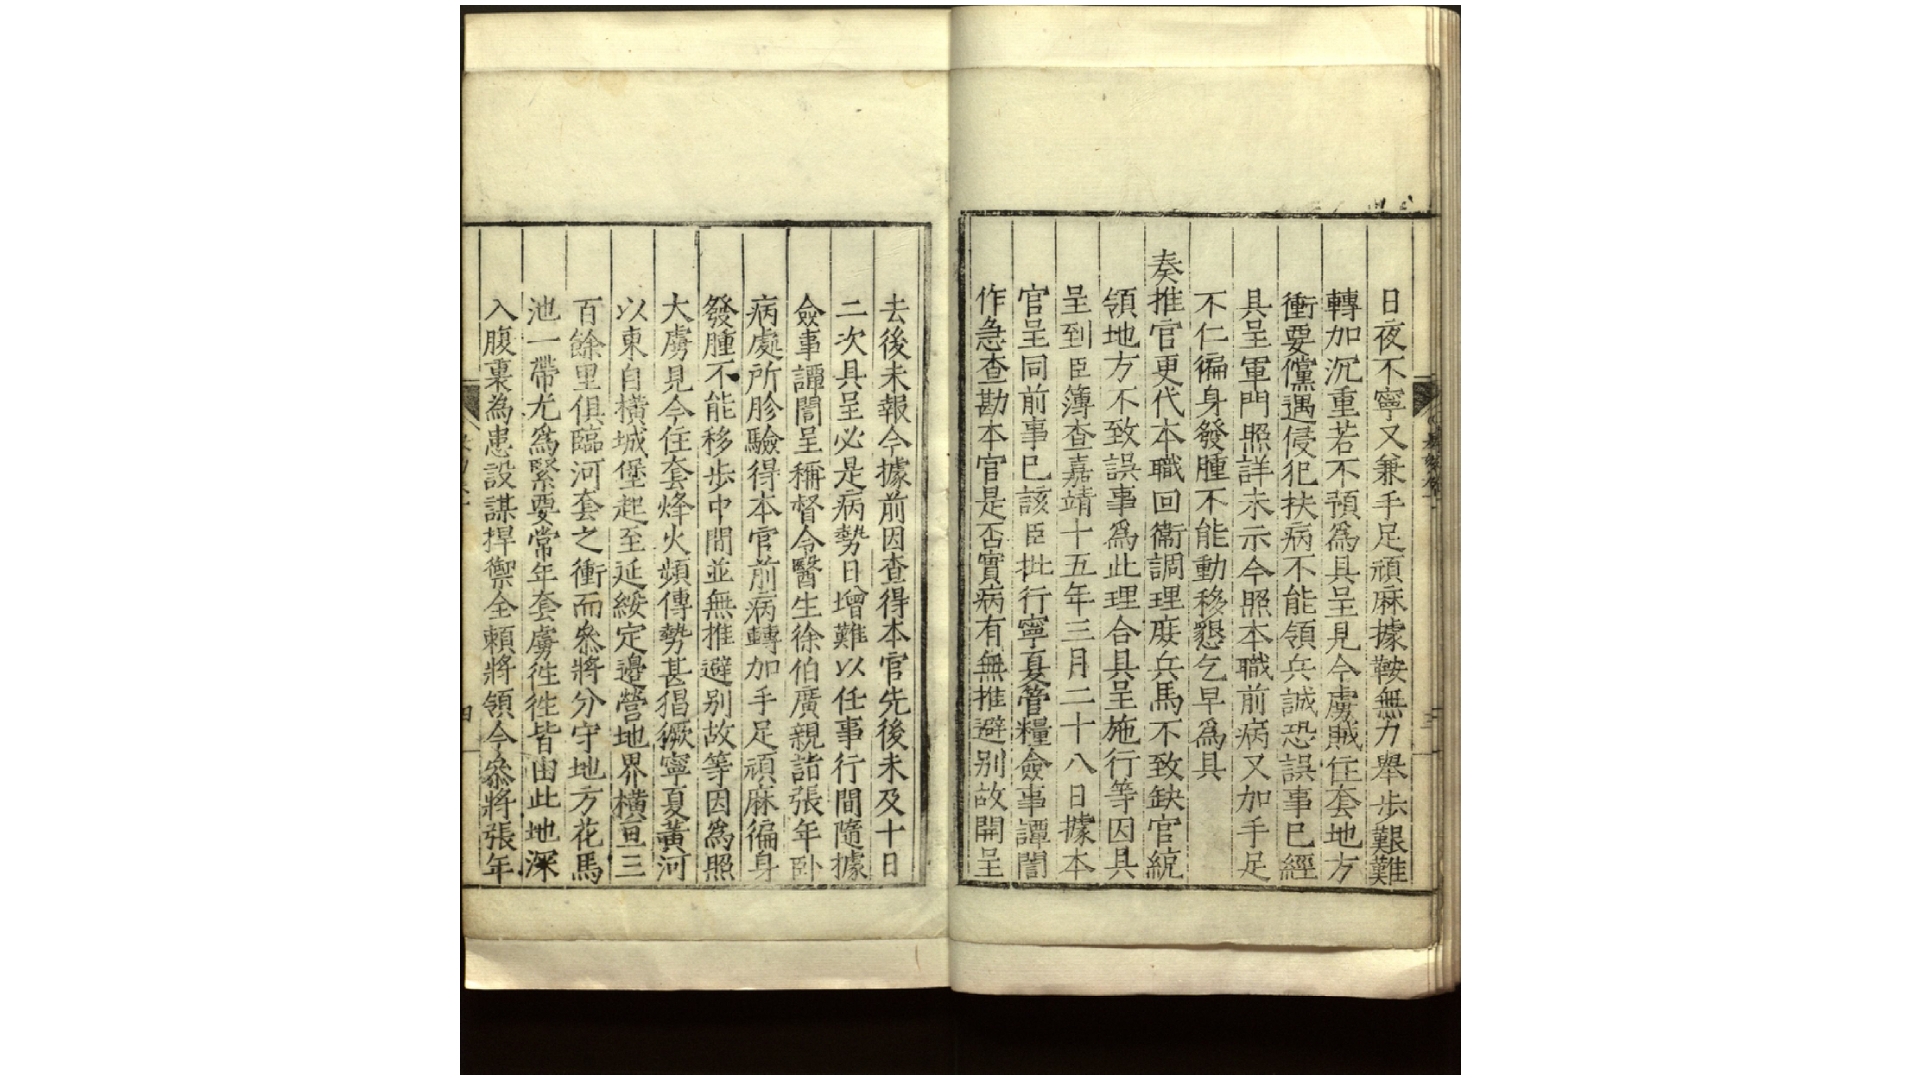 日夜不寧又兼手足頑麻據鞍無力舉步艱難
轉加沉重若不預爲具呈見今虜賊住套地方
衝要儻遇侵犯扶病不能領兵誠恐誤事已經
具呈軍門照詳未示今照本職前病又加手足
不仁徧身發腫不能動移懇乞早爲具
奏推官更代本職回衞調理庻兵馬不致缺官統
領地方不致誤事爲此理合具呈施行等因具
呈到臣簿查嘉靖十五年三月二十八日據本
官呈同前事已該臣批行寧夏管糧僉事譚誾
作急查勘本官是否實病有無推避别故開呈
去後未報今據前因查得本官先後未及十日
二次具呈必是病勢日增難以任事行間隨據
僉事譚誾呈稱督令醫生徐伯廣親詣張年卧
病處所胗驗得本官前病轉加手足頑麻徧身
發腫不能移步中間並無推避别故等因爲照
大虜見今住套烽火頻傳勢甚猖獗寧夏黃河
以東自橫城堡起至延綏定邊營地界橫亘三
百餘里俱臨河套之衝而叅將分守地方花馬
池一帶尤爲緊要常年套虜徃徃皆由此地深
入腹裏為患設謀捍禦全賴將領今叅將張年
四